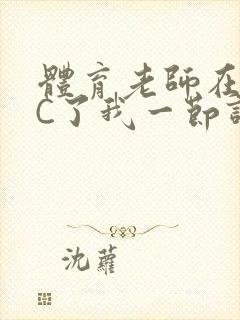 體育老師在
C了我一節
沈蘿